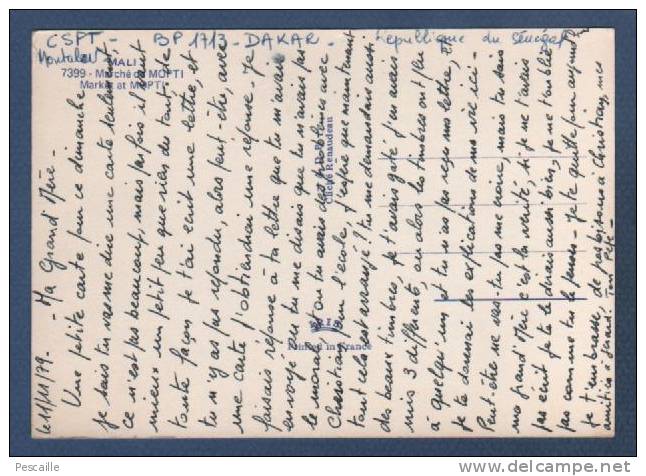 CSPT - BP 1713 - DAKAR - République du Sénégal
Montalieu
MALI
7399 - Marché de MOPTI
Market at MOPTI
Cliché Renaudeau
IRIS
Printed in France
Le 11/11/79. - Ma Grand Mère -
Une petite carte pour ce dimanche
je sais tu vas me dire une carte seulement,
ce n'est pas beaucoup, mais parfois il vaut
mieux un petit peu que rien du tout, de
toute façon je t'ai écrit une lettre, et
tu n'y as pas répondu, alors peut-être, avec
une carte j'obtiendrai une réponse. Je
faisais réponse à ta lettre que tu m'avais
envoyé, où tu me disais que tu n'avais pas
le moral, et où tu avais des problèmes avec
Christian, pour l'école, j'espère que maintenant
tout cela est arrangé! tu me demandais aussi
des beaux timbres, je t'avais gâté j'en avais
mis 3 différents, ou alors les timbres ont plu
à quelqu'un et tu n'as pas reçu ma lettre, et
je te donnais les explications de ma vie ici -
Peut-être ne vas-tu pas me croire, mais tu sais
ma grand Mère c'est la vérité, si je ne t'avais
pas écrit je te le dirais aussi bien, je ne t'oublie
pas comme tu le penses - Je te quitte pour aujourd'hui
je t'embrasse, de gros bisous à Christian, mes
amitiés à